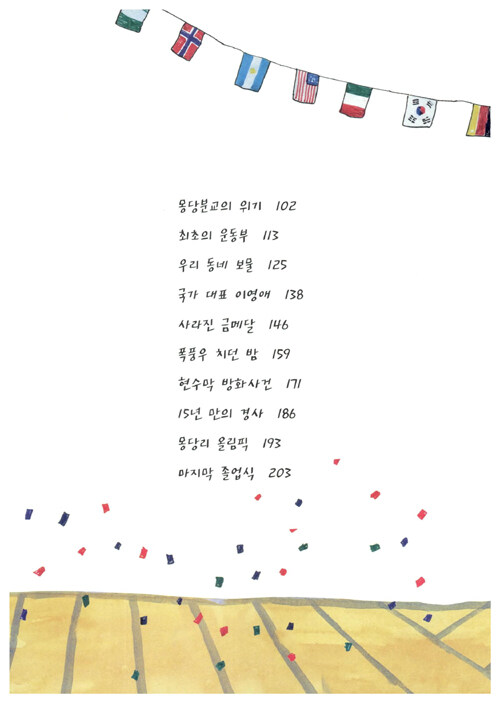 몽당분교의 위기 102
최초의 운동부 113
우리 동네 보물 125
국가 대표 이영애 138
사라진 금메달 146
폭풍우 치던 밤 159
현수막 방화사건 171
15년 만의 경사 186
몽당리 올림픽 193
마지막 졸업식 203